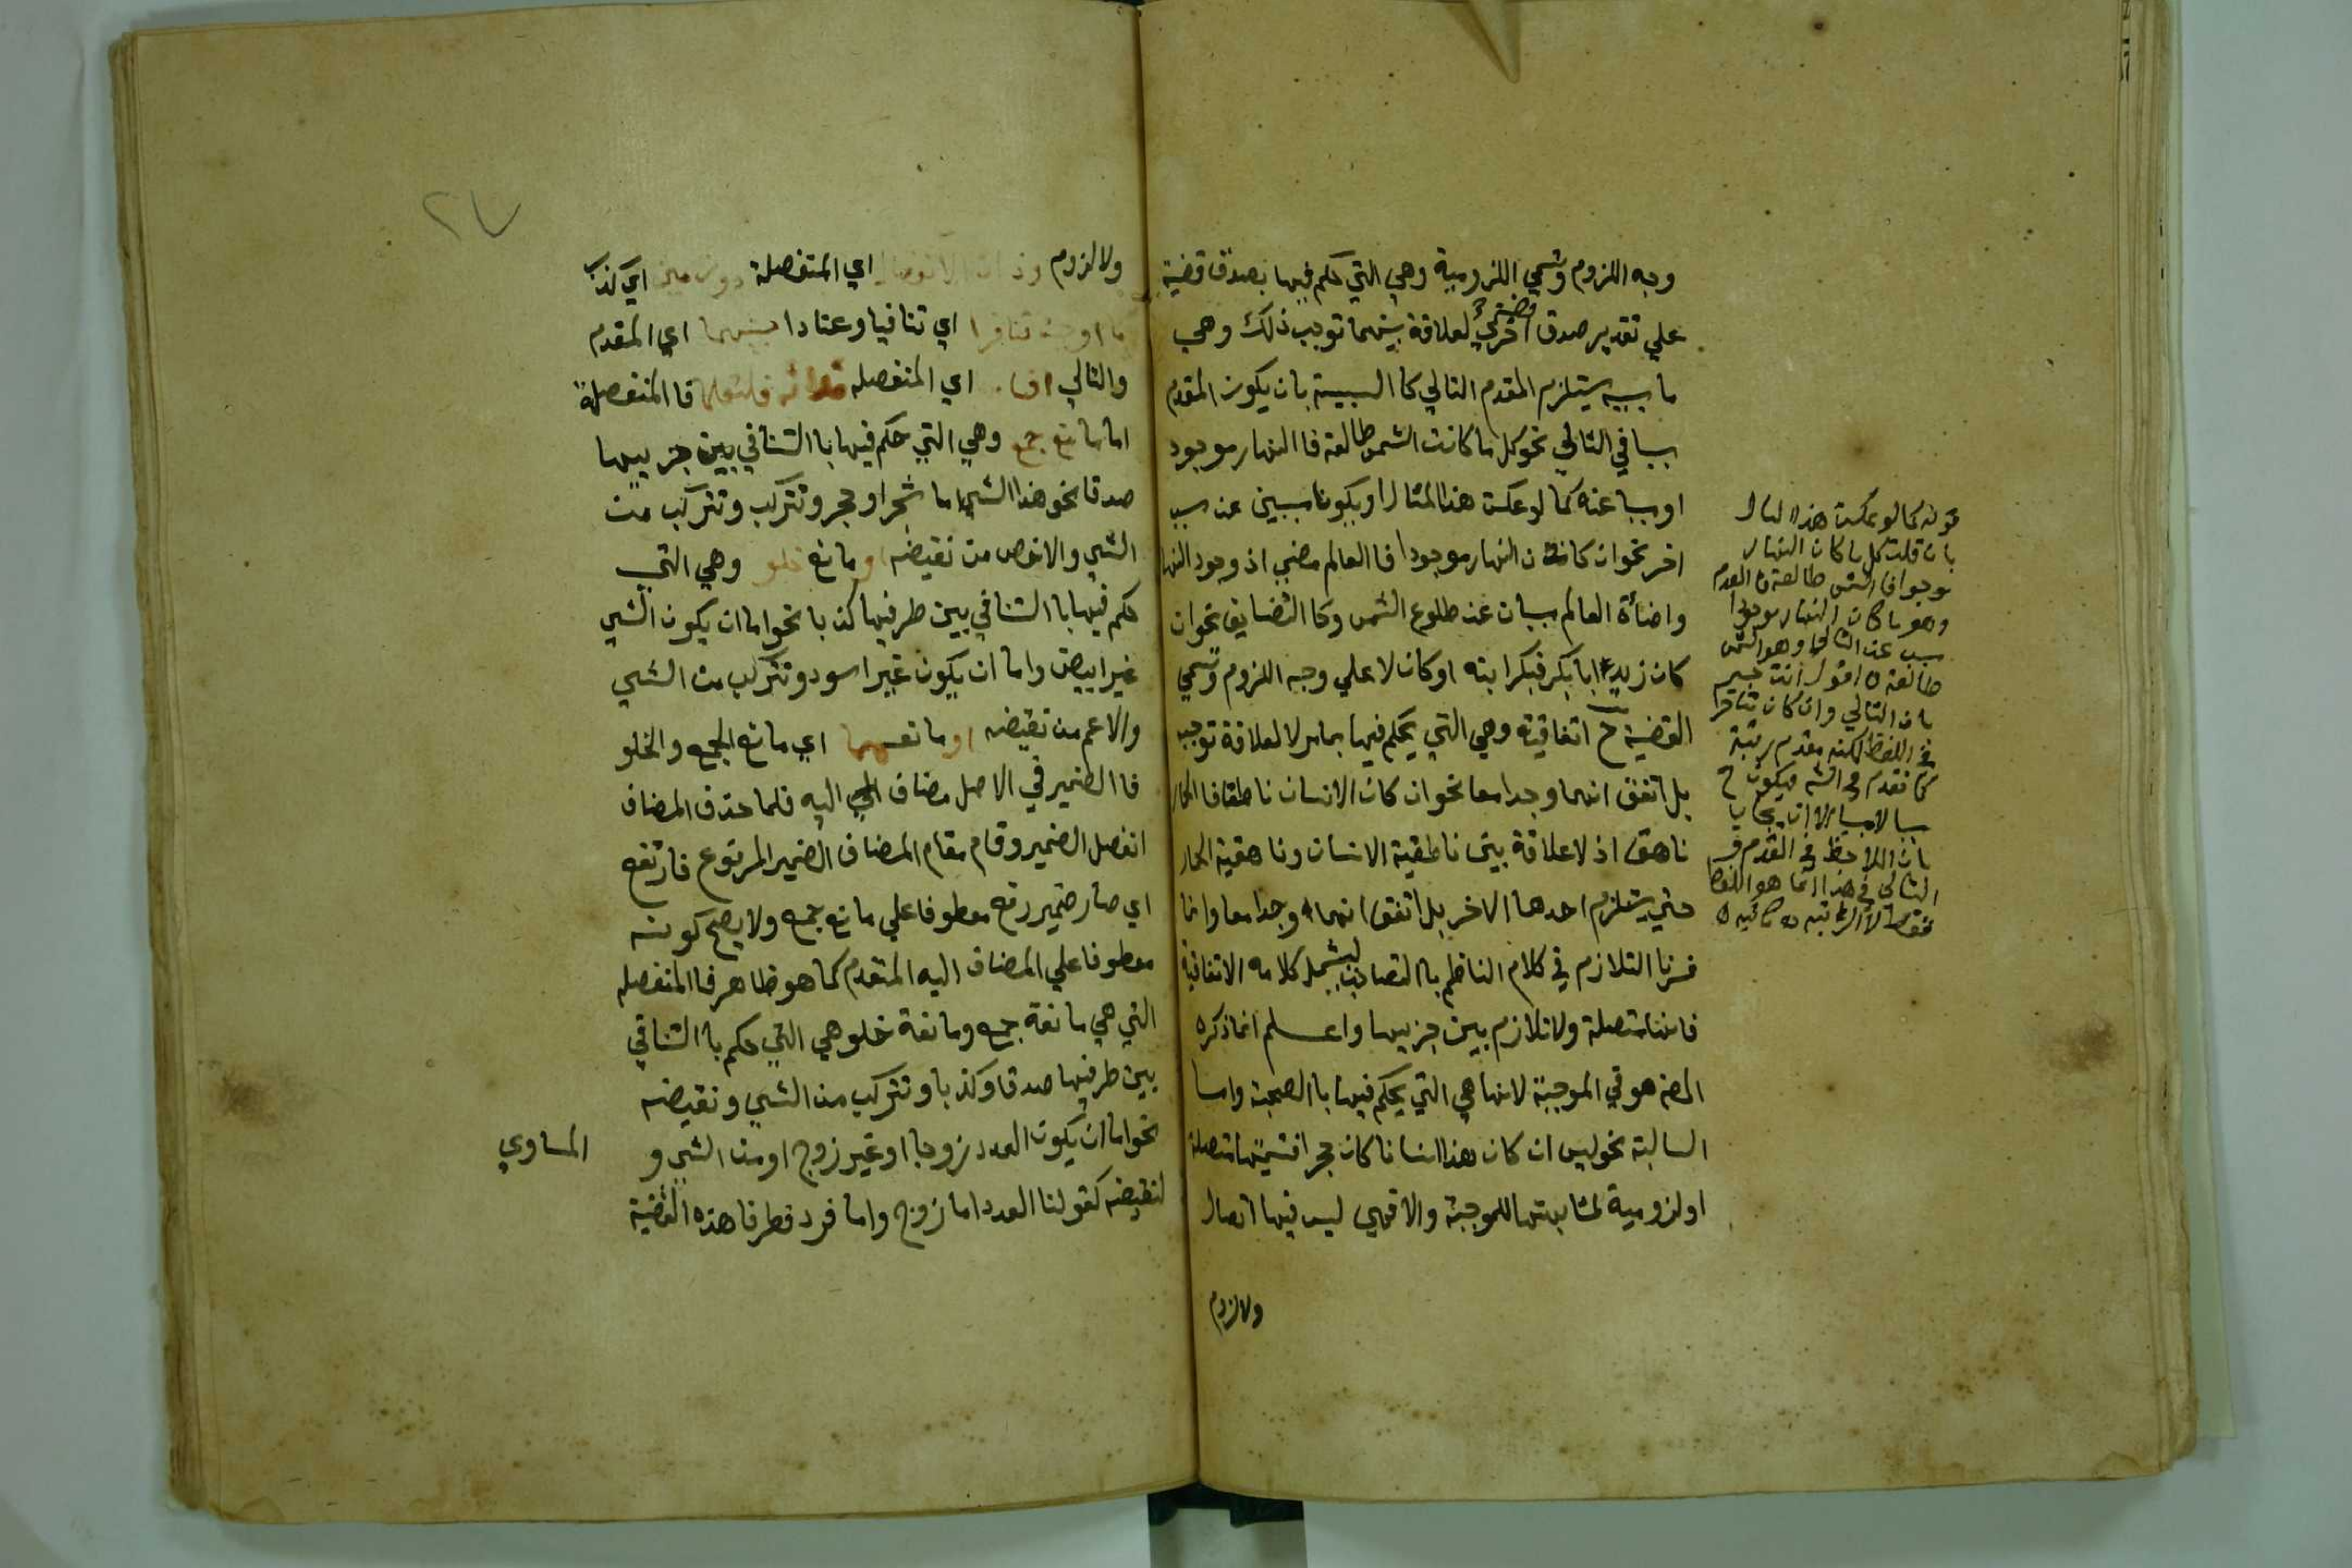 وجه اللزوم وتسمي اللزومية وهي التي حكم فيها بصدق قضية
علي تقدير صدق قضية اخري لعلاقة بينهما توجب ذلك وهي
ما بسببه يستلزم المقدم التالي كاالسببية بان يكون المقدم
سببا في التالي نحو كل ما كانت الشمس طالعة فاالنهار موجود
او سببا عنه كما لو عكست هذا المثال او يكونا سببين عن سبب
اخر نحو ان كان النهار موجودا فاالعالم مضي اذ وجود النهار
واضاءة العالم سببان عن طلوع الشمس وكاالتضايف نحو ان
كان زيد ابا بكر فبكر ابنه او كان لا علي وجه اللزوم وتسمي
القضية ح اتفاقية وهي التي يحكم فيها بما مر لا لعلاقة توجبه
بل اتفق انهما وجدا معا نحو ان كان الانسان ناطقا فاالحمار
ناهق اذ لا علاقة بين ناطقية الانسان وناهقية الحمار
حتي يستلزم احدهما الاخر بل اتفق انهما وجدا معا وانما
فسرنا التلازم في كلام الناظم باالتصاحب ليشمل كلامه الاتفاقية
فانها متصلة ولا تلازم بين جزييها واعلم انما ذكره
المص هو في الموجبة لانها هي التي يحكم فيها باالصحبة واما
السالبة نحو ليس ان كان هذا انسانا كان حجرا فتسميتها متصلة
او لزومية لمشابهتها للموجبة والا فهي ليس فيها اتصال
ولا لزوم
قوله كما لو عكست هذا المثال
بان قلت كل ما كان النهار
موجودا فالشمس طالعة المقدم
وهو ما كان النهار موجودا
سبب عن التالي وهو الشمس
طالعة اقول انت خبير
بان التالي وان كان متأخرا
في اللفظ لكنه مقدم رتبة
كما تقدم في الشرح فيكون ح
الا ان يجاب
بان الملاحظ في المقدم و
التالي في هذا انما هو اللفظ
فقط لا الرتبة
٢٧
ولا لزوم وذات الانفصال اي المنفصلة دون مين اي كذب
ما اوجبت تنافرا اي تنافيا وعنادا بينهما اي المقدم
والتالي اي المنفصله ثلاثة فلتعلما فاالمنفصلة
اما مانع جمع وهي التي حكم فيها باالتنافي بين جزييها
صدقا نحو هذا الشي اما شجر او حجر وتتركب وتتركب من
الشي والاخص من نقيضه او مانع خلو وهي التي
حكم فيها باالتنافي بين طرفيها كذبا نحو اما ان يكون الشي
غير ابيض واما ان يكون غير اسود وتتركب من الشي
والاعم من نقيضه او مانعهما اي مانع الجمع والخلو
فاالضمير في الاصل مضاف اليه فلما حذف المضاف
انفصل الضمير وقام مقام المضاف الضمير المرفوع فارتفع
اي صار ضمير رفع معطوفا علي مانع جمع ولا يصح كونه
معطوفا علي المضاف اليه المتقدم كما هو ظاهر فاالمنفصله
التي هي مانعة جمع ومانعة خلو هي التي حكم باالتنافي
بين طرفيها صدقا وكذبا وتتركب من الشي ونقيضه
نحو اما ان يكون العدد زوجا او غير زوج او من الشي و المساوي
لنقيضه كقولنا العدد اما زوج واما فرد فطرفا هذه القضية